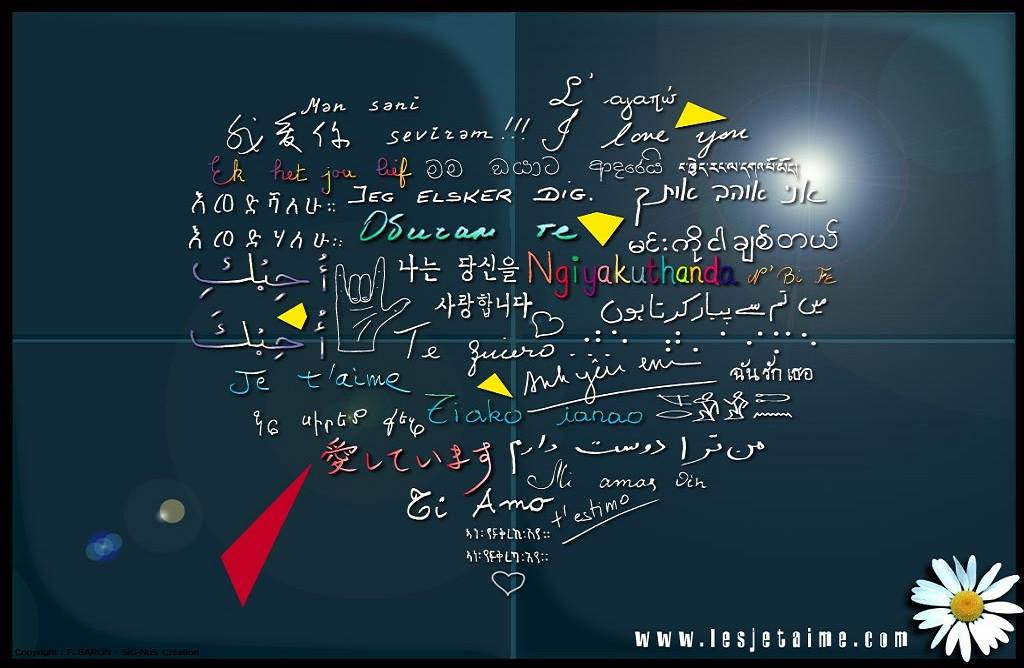 Mən səni
sevirəm!!!
我爱你
I love you
Ek het jou lief
මම ඔයාට ආදරෙයි
JEG ELSKER DIG.
אני אוהב אותך
Oburam te
မင်းကိုငါချစ်တယ်
أُحِبُكِ
나는 당신을
사랑합니다
Ngiyakuthanda
N'Bi Fè
میں تم سے پیار کرتا ہوں
أُحِبُكَ
Te quiero
Anh yêu em
ฉันรักเธอ
Je t'aime
Tiako ianao
Ես սիրեմ քեզ
愛しています
من ترا دوست دارم
Mi amas vin
Ti Amo
t'estimo
www.lesjetaime.com
Copyright : F. BARON - SIG-NoS Création